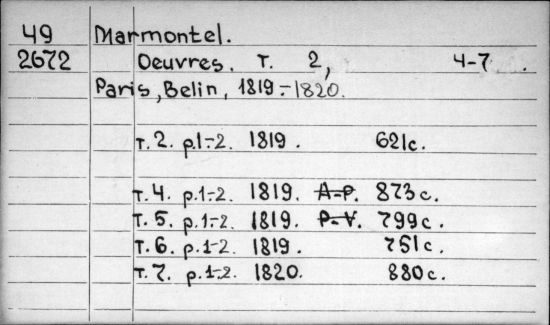 49 Marmontel.
2672 Oeuvres. T. 2, 4-7.
Paris, Belin, 1819-1820.
T. 2. p.1-2. 1819. 621c.
T. 4. p.1-2. 1819. A-P. 873c.
T. 5. p.1-2. 1819. P-V. 799c.
T. 6. p.1-2 1819. 751c.
T. 7. p.1-2. 1820. 880c.